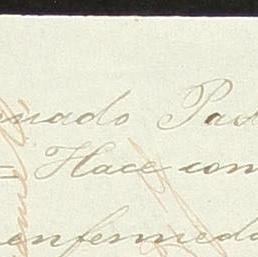 nado Pas
= Hace con
enfermeda